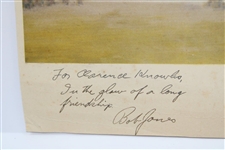 For Clarence Knowles
In the glow of a long
friendship
Bob Jones